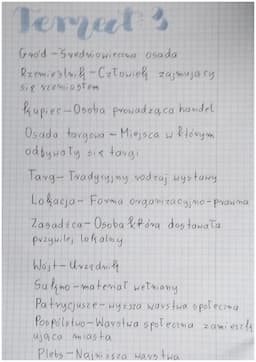 Temat 3
Gród - Średniowieczna osada
Rzemieślnik - Człowiek zajmujący
się rzemiosłem
Kupiec - Osoba prowadząca handel
Osada targowa - Miejsca w którym
odbywały się targi
Targ - Tradycyjny rodzaj wystawy
Lokacja - Forma organizacyjno-prawna
Zasadźca - Osoba która dostawała
przywilej lokalny
Wójt - Urzędnik
Sukno - materiał wełniany
Patrycjusze - wyższa warstwa społeczna
Pospólstwo - Warstwa społeczna zamieszk
ująca miasta
Plebs - Najniższa warstwa